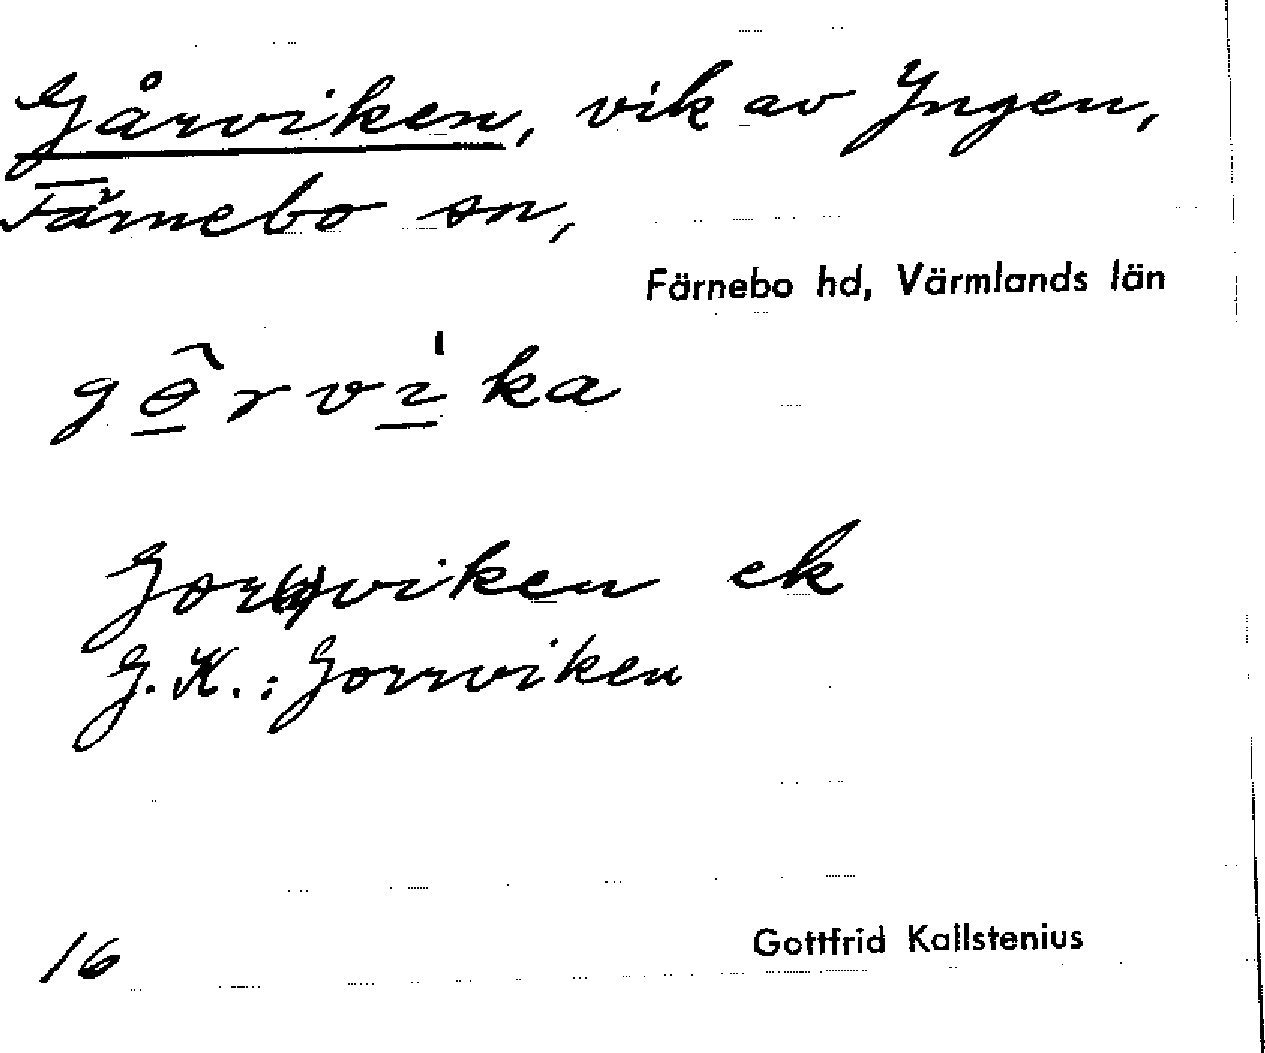 Gårviken, vik av Yngen,
Färnebo sn,
Färnebo hd, Värmlands län
gɵ̂rvi̍ka
Gor(h)viken ek
G.K.: Gorrviken
16
Gottfrid Kallstenius